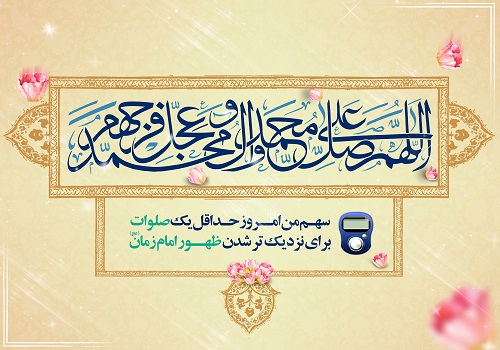 اللّهم صلّ علی محمد وآل محمد وعجّل فرجهم
سهم من امروز حداقل یک صلوات
برای نزدیک تر شدن ظهور امام زمان (عج)